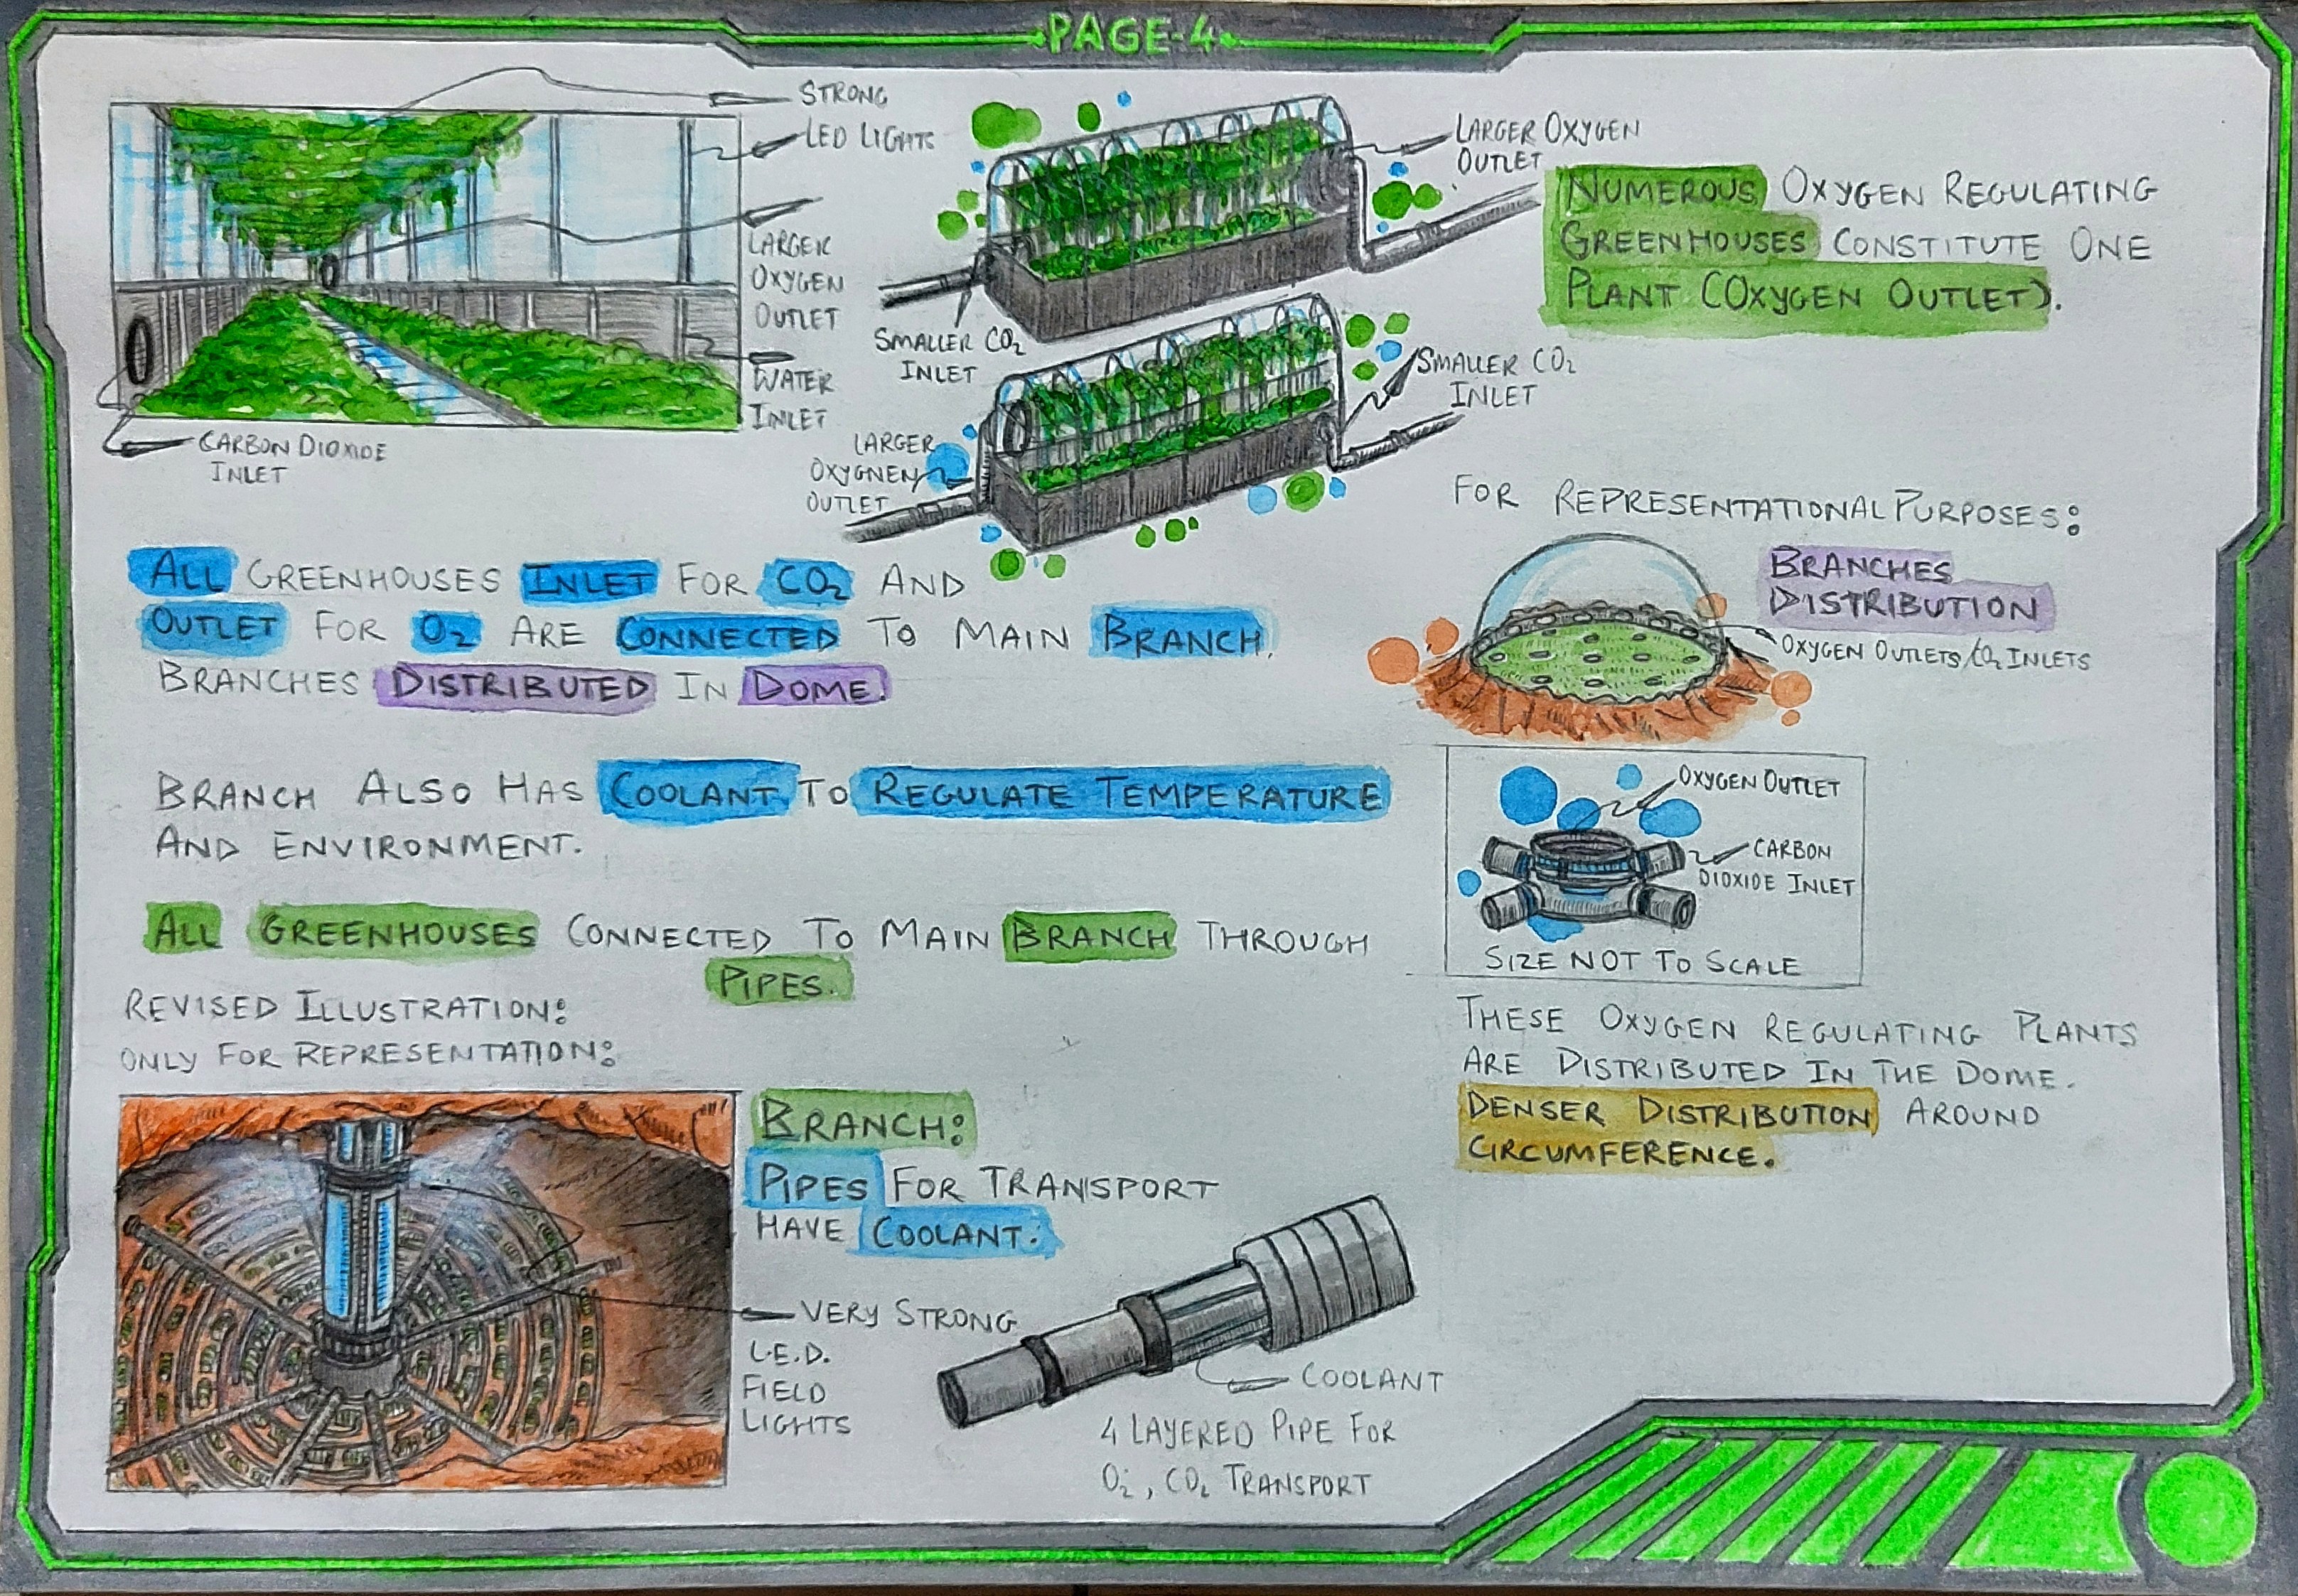 PAGE-4
STRONG
LED LIGHTS
LARGER
OXYGEN
OUTLET
WATER
INLET
CARBON DIOXIDE
INLET
LARGER OXYGEN
OUTLET
SMALLER CO₂
INLET
SMALLER CO₂
INLET
LARGER
OXYGNEN
OUTLET
NUMEROUS OXYGEN REGULATING
GREENHOUSES CONSTITUTE ONE
PLANT (OXYGEN OUTLET).
ALL GREENHOUSES INLET FOR CO₂ AND
OUTLET FOR O₂ ARE CONNECTED TO MAIN BRANCH.
BRANCHES DISTRIBUTED IN DOME.
BRANCH ALSO HAS COOLANT TO REGULATE TEMPERATURE
AND ENVIRONMENT.
ALL GREENHOUSES CONNECTED TO MAIN BRANCH THROUGH
PIPES.
REVISED ILLUSTRATION:
ONLY FOR REPRESENTATION:
BRANCH:
PIPES FOR TRANSPORT
HAVE COOLANT:
VERY STRONG
L.E.D.
FIELD
LIGHTS
COOLANT
4 LAYERED PIPE FOR
O₂, CO₂ TRANSPORT
FOR REPRESENTATIONAL PURPOSES:
BRANCHES
DISTRIBUTION
OXYGEN OUTLETS/CO₂ INLETS
OXYGEN OUTLET
CARBON
DIOXIDE INLET
SIZE NOT TO SCALE
THESE OXYGEN REGULATING PLANTS
ARE DISTRIBUTED IN THE DOME.
DENSER DISTRIBUTION AROUND
CIRCUMFERENCE.